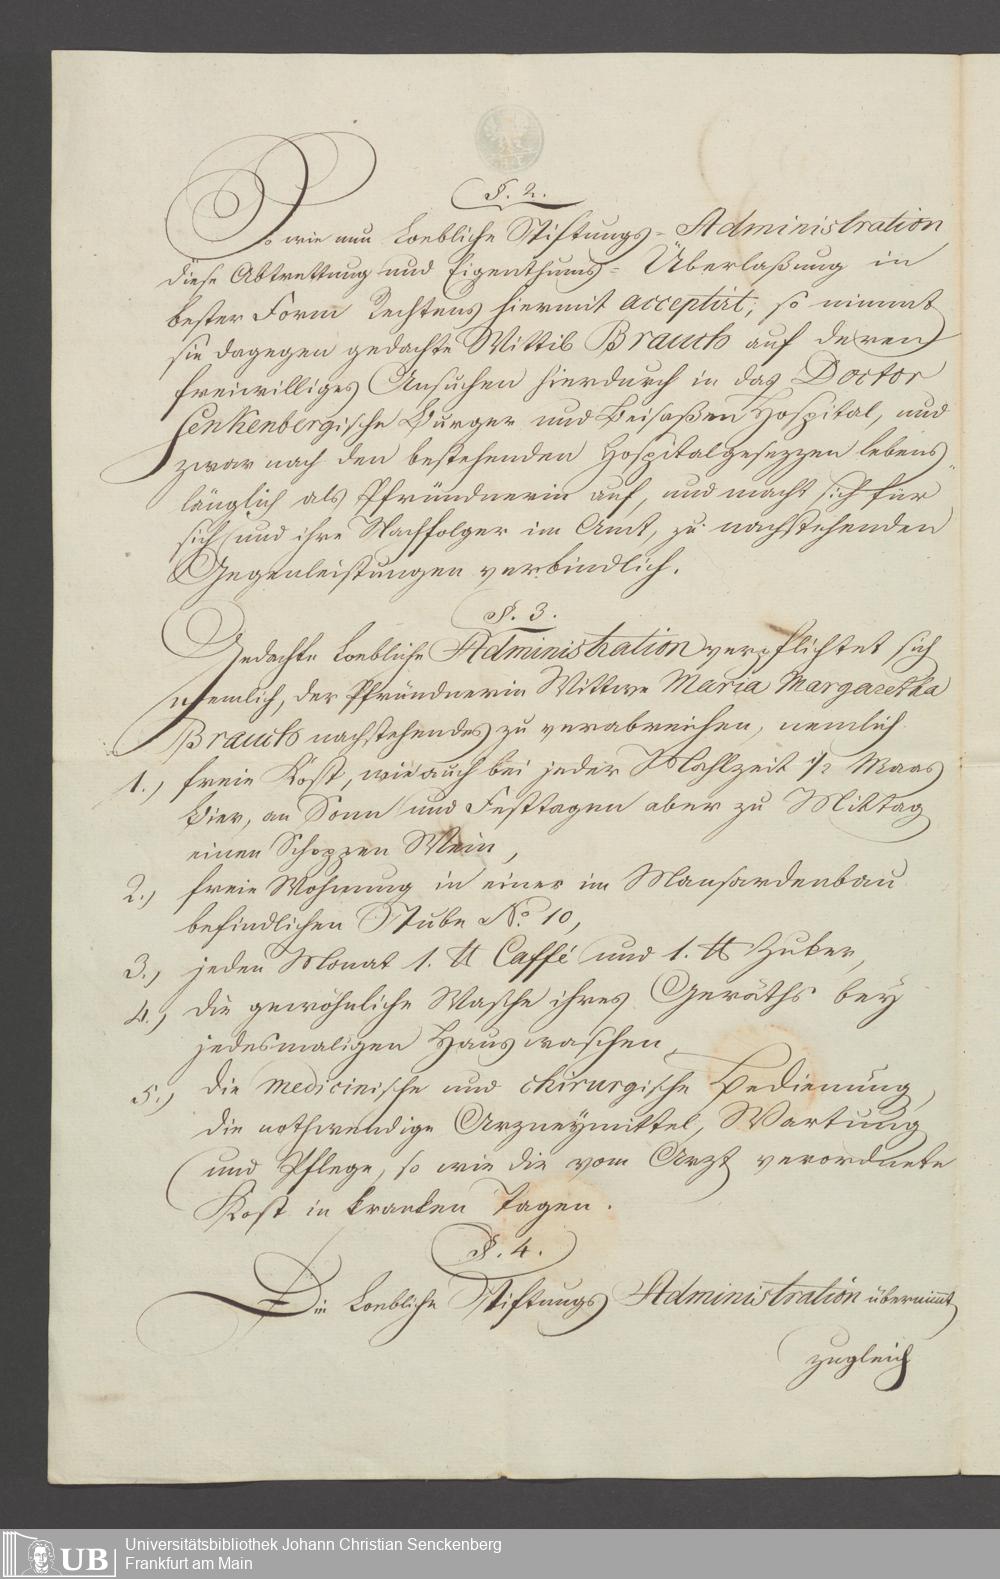 §. 2.
So wie nun Loebliche Stiftungs-Administration
diese Abtrettung und Eigenthums-Überlaßung in
bester Form Rechtens hiermit acceptirt, so nimmt
sie dagegen gedachte Wittib Brauch auf deren
freiwilliges Ansuchen hierdurch in das Doctor
Senkenbergische Burger und Beisaßen Hospital, und
zwar nach den bestehenden Hospitalgesezzen lebens„
länglich als Pfründnerin auf, und macht sich für
sich und ihre Nachfolger im Amt, zu nachstehenden
Gegenleistungen verbindlich.
§. 3.
Gedachte Loebliche Administration verpflichtet sich
nemlich, der Pfründnerin Wittwe Maria Margaretha
Brauch nachstehendes zu verabreichen, nemlich
1., freie Kost, wie auch bei jeder Mahlzeit 1/2 Maas
Bier, an Sonn und Festtagen aber zu Mittag
einen Schoppen Wein,
2., freie Wohnung in einer im Mansardenbau
befindlichen Stube No. 10,
3., jeden Monat 1. ℔ Caffé und 1. ℔ Zuker,
4., die gewöhnliche Wasche ihres Geräths bey
jedesmaligen Hauswaschen,
5., die medicinische und chirurgische Bedienung,
die nothwendige Arzneymittel, Wartung
und Pflege, so wie die vom Arzt verordnete
Kost in kranken Tagen.
§. 4.
Die Loebliche Stiftungs Administration übernimt
zugleich
UB
Universitätsbibliothek Johann Christian Senckenberg
Frankfurt am Main